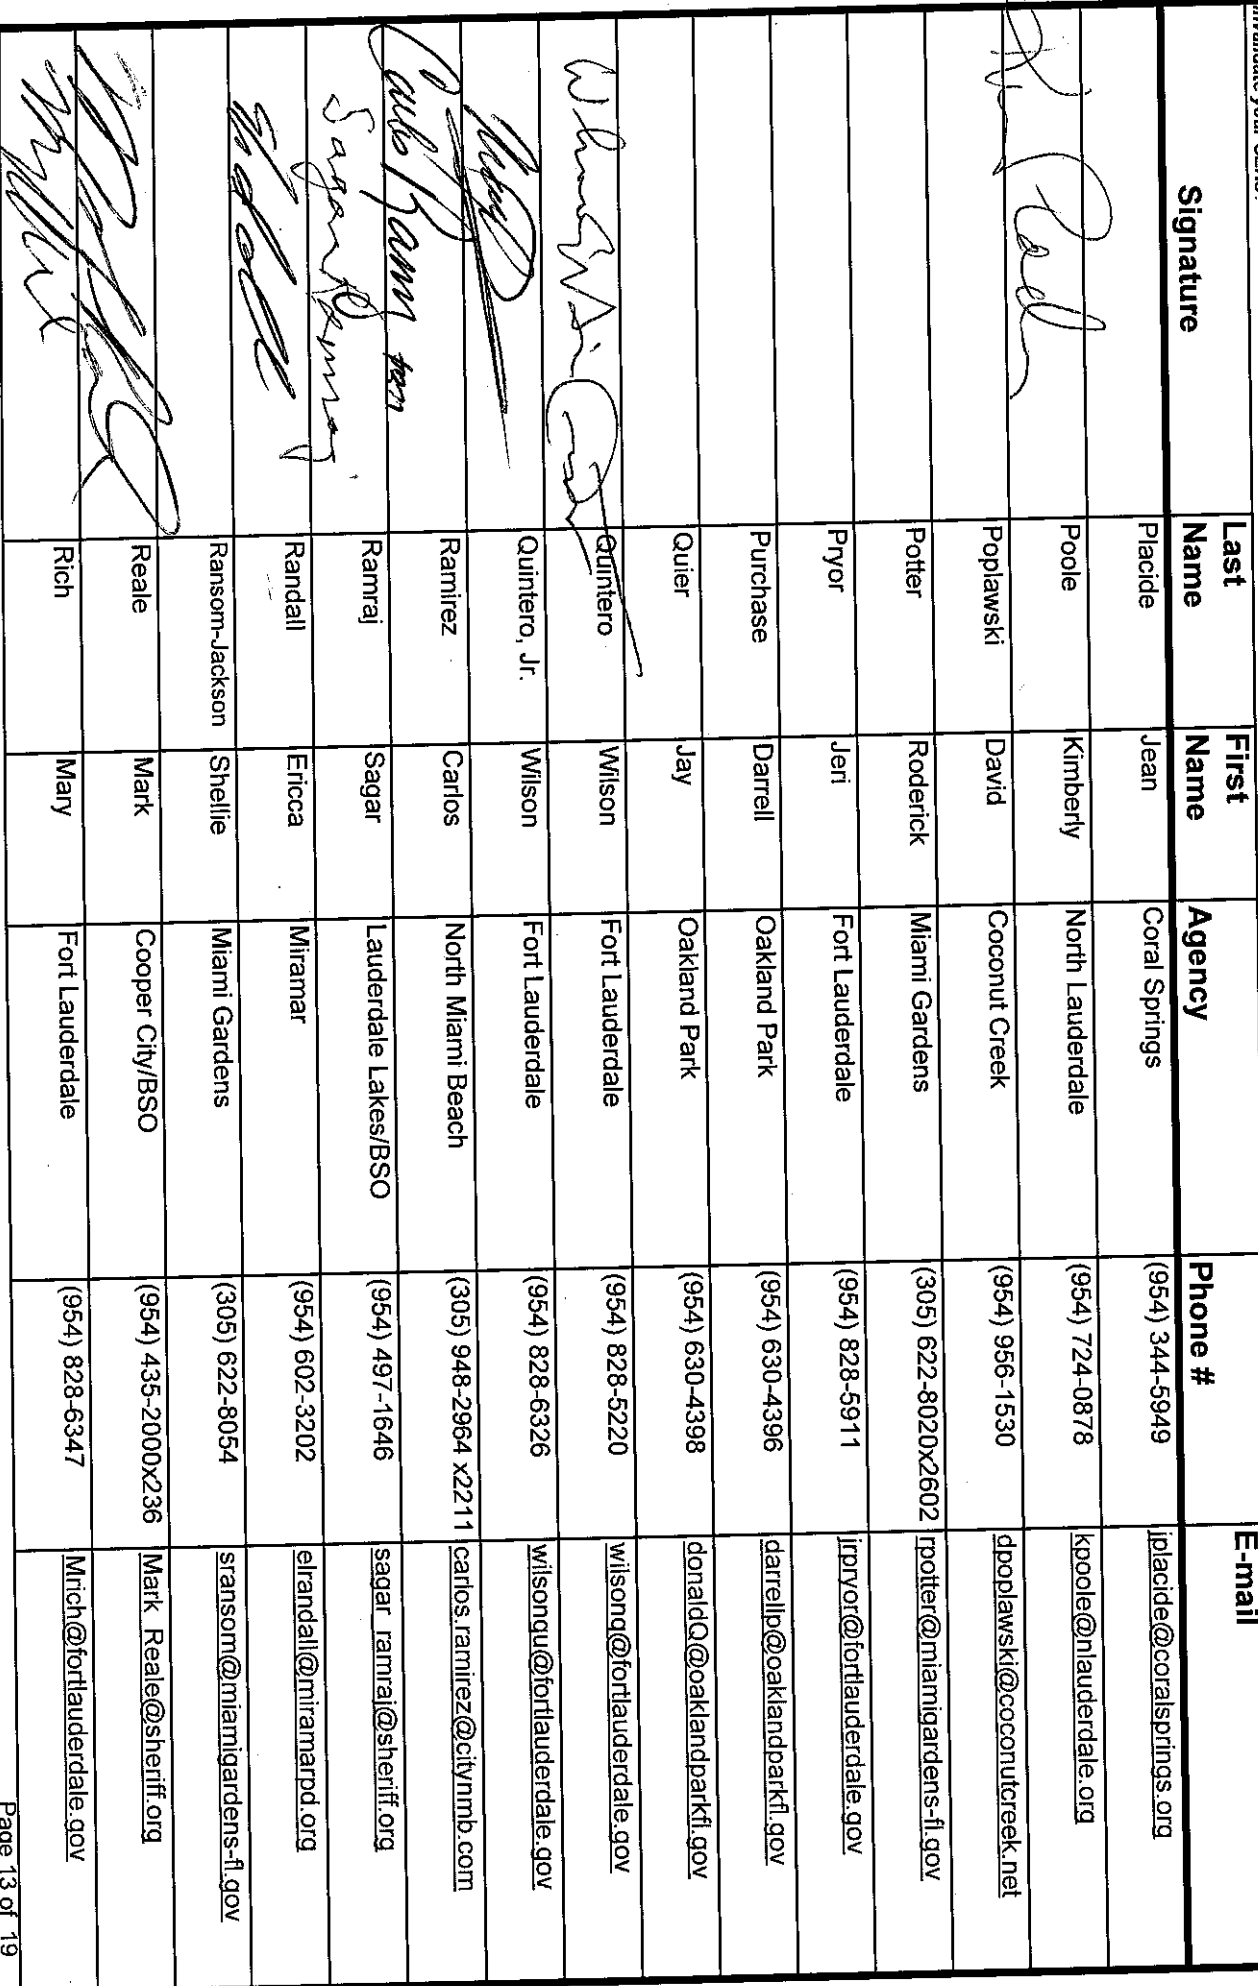 Signature Last Name First Name Agency Phone # E-mail
Placide Jean Coral Springs (954) 344-5949 jplacide@coralsprings.org
Poole Kimberly North Lauderdale (954) 724-0878 kpoole@nlauderdale.org
Poplawski David Coconut Creek (954) 956-1530 dpoplawski@coconutcreek.net
Potter Roderick Miami Gardens (305) 622-8020x2602 rpotter@miamigardens-fl.gov
Pryor Jeri Fort Lauderdale (954) 828-5911 jrpryor@fortlauderdale.gov
Purchase Darrell Oakland Park (954) 630-4396 darrellp@oaklandparkfl.gov
Quier Jay Oakland Park (954) 630-4398 donaldQ@oaklandparkfl.gov
Quintero Wilson Fort Lauderdale (954) 828-5220 wilsonq@fortlauderdale.gov
Quintero, Jr. Wilson Fort Lauderdale (954) 828-6326 wilsonqu@fortlauderdale.gov
Ramirez Carlos North Miami Beach (305) 948-2964 x2211 carlos.ramirez@citynmb.com
Sagar Ramraj Ramraj Sagar Lauderdale Lakes/BSO (954) 497-1646 sagar_ramraj@sheriff.org
Randall Ericca Miramar (954) 602-3202 elrandall@miramarpd.org
Ransom-Jackson Shellie Miami Gardens (305) 622-8054 sransom@miamigardens-fl.gov
Reale Mark Cooper City/BSO (954) 435-2000x236 Mark_Reale@sheriff.org
Rich Mary Fort Lauderdale (954) 828-6347 Mrich@fortlauderdale.gov
Page 13 of 19